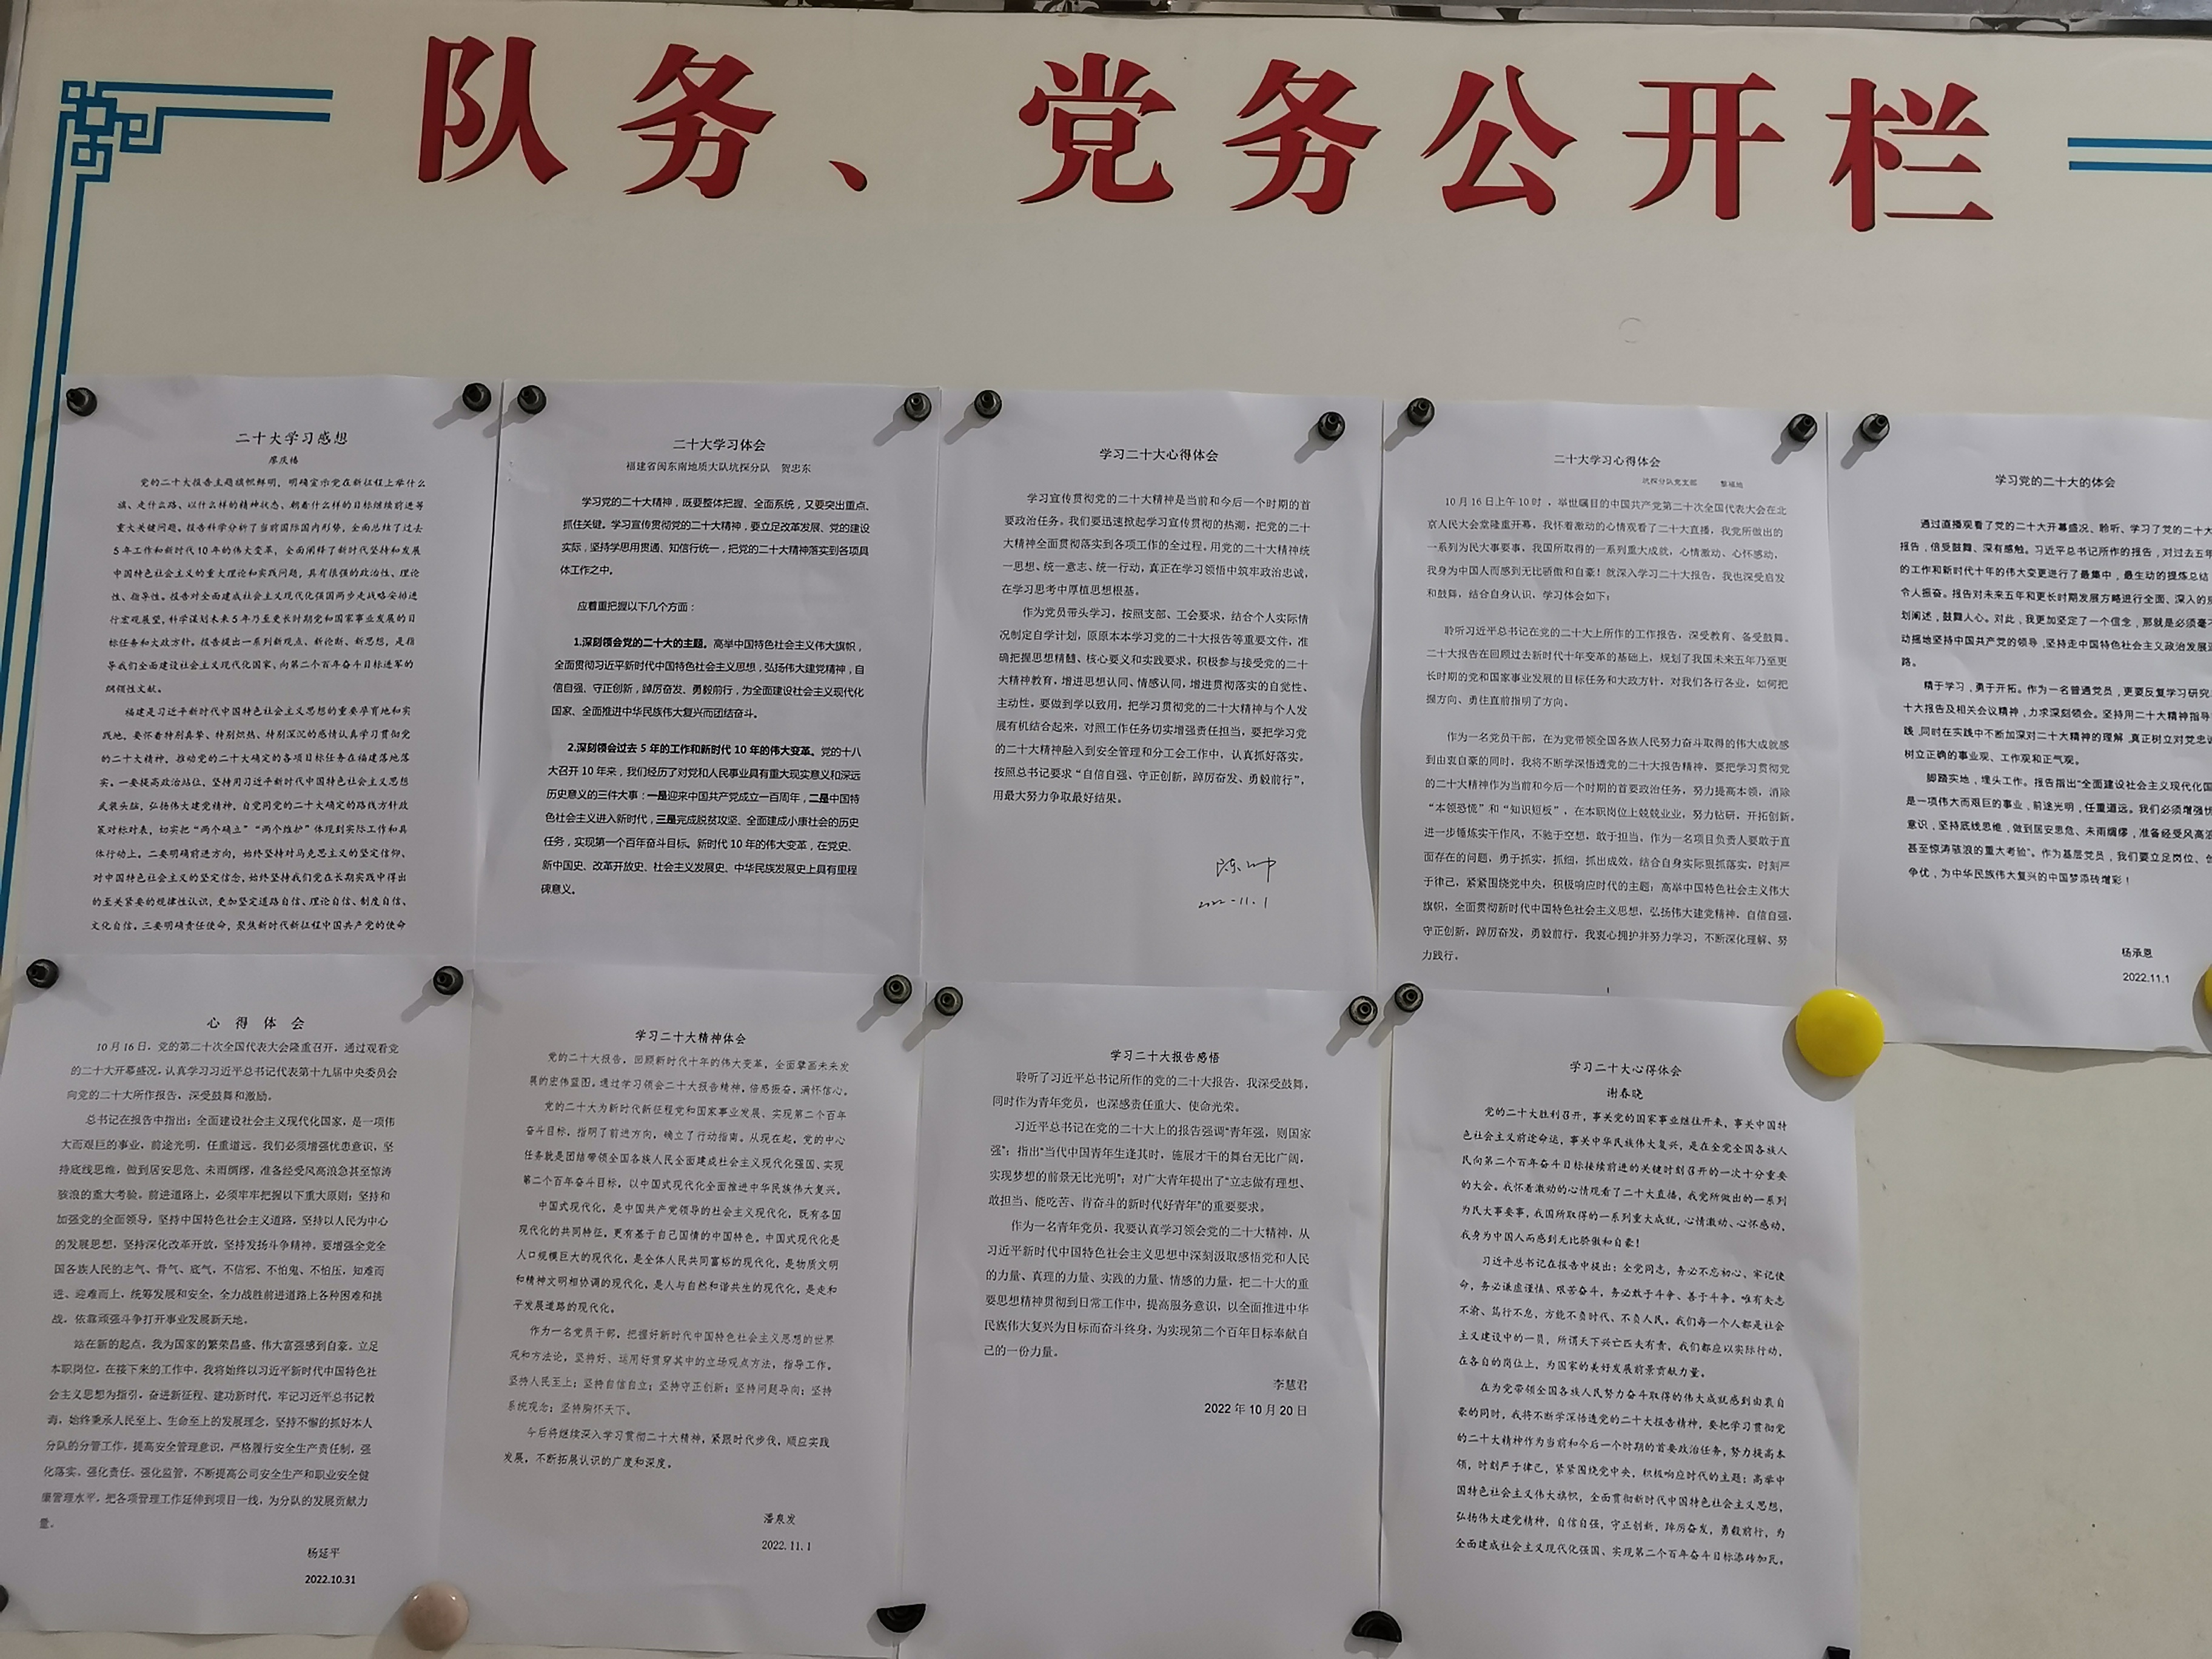 队务、党务公开栏
二十大学习感想
廖庆椿
党的二十大报告主题旗帜鲜明，明确宣示党在新征程上举什么
旗、走什么路、以什么样的精神状态、朝着什么样的目标继续前进等
重大关键问题。报告科学分析了当前国际国内形势，全面总结了过去
5年工作和新时代10年的伟大变革，全面阐释了新时代坚持和发展
中国特色社会主义的重大理论和实践问题，具有很强的政治性、理论
性、指导性。报告对全面建成社会主义现代化强国两步走战略安排进
行宏观展望，科学谋划未来5年乃至更长时期党和国家事业发展的目
标任务和大政方针。报告提出一系列新观点、新论断、新思想，是指
导我们全面建设社会主义现代化国家、向第二个百年奋斗目标进军的
纲领性文献。
福建是习近平新时代中国特色社会主义思想的重要孕育地和实
践地，要怀着特别真挚、特别炽热、特别深沉的感情认真学习贯彻党
的二十大精神，推动党的二十大确定的各项目标任务在福建落地落
实。一要提高政治站位，坚持用习近平新时代中国特色社会主义思想
武装头脑，弘扬伟大建党精神，自觉同党的二十大确定的路线方针政
策对标对表，切实把“两个确立”“两个维护”体现到实际工作和具
体行动上。二要明确前进方向，始终坚持对马克思主义的坚定信仰、
对中国特色社会主义的坚定信念，始终坚持我们党在长期实践中得出
的至关紧要的规律性认识，更加坚定道路自信、理论自信、制度自信、
文化自信。三要明确责任使命，聚焦新时代新征程中国共产党的使命
二十大学习体会
福建省闽东南地质大队坑探分队 贺忠东
学习党的二十大精神，既要整体把握、全面系统，又要突出重点、
抓住关键。学习宣传贯彻党的二十大精神，要立足改革发展、党的建设
实际，坚持学思用贯通、知信行统一，把党的二十大精神落实到各项具
体工作之中。
应着重把握以下几个方面：
1.深刻领会党的二十大的主题。高举中国特色社会主义伟大旗帜，
全面贯彻习近平新时代中国特色社会主义思想，弘扬伟大建党精神，自
信自强、守正创新，踔厉奋发、勇毅前行，为全面建设社会主义现代化
国家、全面推进中华民族伟大复兴而团结奋斗。
2.深刻领会过去5年的工作和新时代10年的伟大变革。党的十八
大召开10年来，我们经历了对党和人民事业具有重大现实意义和深远
历史意义的三件大事：一是迎来中国共产党成立一百周年，二是中国特
色社会主义进入新时代，三是完成脱贫攻坚、全面建成小康社会的历史
任务，实现第一个百年奋斗目标。新时代10年的伟大变革，在党史、
新中国史、改革开放史、社会主义发展史、中华民族发展史上具有里程
碑意义。
学习二十大心得体会
学习宣传贯彻党的二十大精神是当前和今后一个时期的首
要政治任务。我们要迅速掀起学习宣传贯彻的热潮，把党的二十
大精神全面贯彻落实到各项工作的全过程，用党的二十大精神统
一思想、统一意志、统一行动，真正在学习领悟中筑牢政治忠诚，
在学习思考中厚植思想根基。
作为党员带头学习，按照支部、工会要求，结合个人实际情
况制定自学计划，原原本本学习党的二十大报告等重要文件，准
确把握思想精髓、核心要义和实践要求。积极参与接受党的二十
大精神教育，增进思想认同、情感认同，增进贯彻落实的自觉性、
主动性。要做到学以致用，把学习贯彻党的二十大精神与个人发
展有机结合起来，对照工作任务切实增强责任担当，要把学习党
的二十大精神融入到安全管理和分工会工作中，认真抓好落实。
按照总书记要求“自信自强、守正创新，踔厉奋发、勇毅前行”，
用最大努力争取最好结果。
2022-11.1
二十大学习心得体会
坑探分队党支部 黎福地
10月16日上午10时，举世瞩目的中国共产党第二十次全国代表大会在北
京人民大会堂隆重开幕，我怀着激动的心情观看了二十大直播，我党所做出的
一系列为民大事要事，我国所取得的一系列重大成就，心情激动、心怀感动，
我身为中国人而感到无比骄傲和自豪！就深入学习二十大报告，我也深受启发
和鼓舞，结合自身认识，学习体会如下：
聆听习近平总书记在党的二十大上所作的工作报告，深受教育、备受鼓舞。
二十大报告在回顾过去新时代十年变革的基础上，规划了我国未来五年乃至更
长时期的党和国家事业发展的目标任务和大政方针，对我们各行各业，如何把
握方向、勇往直前指明了方向。
作为一名党员干部，在为党带领全国各族人民努力奋斗取得的伟大成就感
到由衷自豪的同时，我将不断学深悟透党的二十大报告精神，要把学习贯彻党
的二十大精神作为当前和今后一个时期的首要政治任务，努力提高本领，消除
“本领恐慌”和“知识短板”，在本职岗位上兢兢业业，努力钻研，开拓创新，
进一步锤练实干作风，不驰于空想，敢于担当，作为一名项目负责人要敢于直
面存在的问题，勇于抓实，抓细，抓出成效，结合自身实际狠抓落实，时刻严
于律己，紧紧围绕党中央，积极响应时代的主题：高举中国特色社会主义伟大
旗帜，全面贯彻新时代中国特色社会主义思想，弘扬伟大建党精神，自信自强，
守正创新，踔厉奋发，勇毅前行，我衷心拥护并努力学习，不断深化理解、努
力践行。
1
学习党的二十大的体会
通过直播观看了党的二十大开幕盛况、聆听、学习了党的二十大
报告，倍受鼓舞、深有感触。习近平总书记所作的报告，对过去五年
的工作和新时代十年的伟大变更进行了最集中，最生动的提炼总结
令人振奋。报告对未来五年和更长时期发展方略进行全面、深入的
划阐述，鼓舞人心。对此，我更加坚定了一个信念，那就是必须毫
动摇地坚持中国共产党的领导，坚持走中国特色社会主义政治发展
路。
精于学习，勇于开拓。作为一名普通党员，更要反复学习研究
十大报告及相关会议精神，力求深刻领会。坚持用二十大精神指导
践，同时在实践中不断加深对二十大精神的理解，真正树立对党忠
树立正确的事业观、工作观和正气观。
脚踏实地，埋头工作。报告指出“全面建设社会主义现代化国
是一项伟大而艰巨的事业，前途光明，任重道远。我们必须增强
意识，坚持底线思维，做到居安思危、未雨绸缪，准备经受风高
甚至惊涛骇浪的重大考验”。作为基层党员，我们要立足岗位、
争优，为中华民族伟大复兴的中国梦添砖增彩！
杨承恩
2022.11.1
心 得 体 会
10月16日，党的第二十次全国代表大会隆重召开，通过观看党
的二十大开幕盛况，认真学习习近平总书记代表第十九届中央委员会
向党的二十大所作报告，深受鼓舞和激励。
总书记在报告中指出：全面建设社会主义现代化国家，是一项伟
大而艰巨的事业，前途光明，任重道远，我们必须增强忧患意识，坚
持底线思维，做到居安思危、未雨绸缪，准备经受风高浪急甚至惊涛
骇浪的重大考验。前进道路上，必须牢牢把握以下重大原则：坚持和
加强党的全面领导，坚持中国特色社会主义道路，坚持以人民为中心
的发展思想，坚持深化改革开放，坚持发扬斗争精神。要增强全党全
国各族人民的志气、骨气、底气，不信邪、不怕鬼、不怕压，知难而
进、迎难而上，统筹发展和安全，全力战胜前进道路上各种困难和挑
战，依靠顽强斗争打开事业发展新天地。
站在新的起点，我为国家的繁荣昌盛、伟大富强感到自豪。立足
本职岗位，在接下来的工作中，我将始终以习近平新时代中国特色社
会主义思想为指引，奋进新征程、建功新时代，牢记习近平总书记教
诲，始终秉承人民至上、生命至上的发展理念，坚持不懈的抓好本人
分队的分管工作，提高安全管理意识，严格履行安全生产责任制，强
化落实、强化责任、强化监管，不断提高公司安全生产和职业安全健
康管理水平，把各项管理工作延伸到项目一线，为分队的发展贡献力
量。
杨延平
2022.10.31
学习二十大精神体会
党的二十大报告，回顾新时代十年的伟大变革，全面擘画未来发
展的宏伟蓝图。通过学习领会二十大报告精神，倍感振奋，满怀信心。
党的二十大为新时代新征程党和国家事业发展、实现第二个百年
奋斗目标，指明了前进方向，确立了行动指南。从现在起，党的中心
任务就是团结带领全国各族人民全面建成社会主义现代化强国、实现
第二个百年奋斗目标，以中国式现代化全面推进中华民族伟大复兴。
中国式现代化，是中国共产党领导的社会主义现代化，既有各国
现代化的共同特征，更有基于自己国情的中国特色。中国式现代化是
人口规模巨大的现代化，是全体人民共同富裕的现代化，是物质文明
和精神文明相协调的现代化，是人与自然和谐共生的现代化，是走和
平发展道路的现代化。
作为一名党员干部，把握好新时代中国特色社会主义思想的世界
观和方法论，坚持好、运用好贯穿其中的立场观点方法，指导工作。
坚持人民至上；坚持自信自立；坚持守正创新；坚持问题导向；坚持
系统观念；坚持胸怀天下。
今后将继续深入学习贯彻二十大精神，紧跟时代步伐，顺应实践
发展，不断拓展认识的广度和深度。
潘泉发
2022.11.1
学习二十大报告感悟
聆听了习近平总书记所作的党的二十大报告，我深受鼓舞，
同时作为青年党员，也深感责任重大、使命光荣。
习近平总书记在党的二十大上的报告强调“青年强，则国家
强”；指出“当代中国青年生逢其时，施展才干的舞台无比广阔，
实现梦想的前景无比光明”；对广大青年提出了“立志做有理想、
敢担当、能吃苦、肯奋斗的新时代好青年”的重要要求。
作为一名青年党员，我要认真学习领会党的二十大精神，从
习近平新时代中国特色社会主义思想中深刻汲取感悟党和人民
的力量、真理的力量、实践的力量、情感的力量，把二十大的重
要思想精神贯彻到日常工作中，提高服务意识，以全面推进中华
民族伟大复兴为目标而奋斗终身，为实现第二个百年目标奉献自
己的一份力量。
李慧君
2022年10月20日
学习二十大心得体会
谢春晓
党的二十大胜利召开，事关党的国家事业继往开来，事关中国特
色社会主义前途命运，事关中华民族伟大复兴，是在全党全国各族人
民向第二个百年奋斗目标接续前进的关键时刻召开的一次十分重要
的大会。我怀着激动的心情观看了二十大直播，我党所做出的一系列
为民大事要事，我国所取得的一系列重大成就，心情激动、心怀感动，
我身为中国人而感到无比骄傲和自豪！
习近平总书记在报告中提出：全党同志，务必不忘初心、牢记使
命，务必谦虚谨慎、艰苦奋斗，务必敢于斗争、善于斗争。唯有矢志
不渝、笃行不怠，方能不负时代、不负人民。我们每一个人都是社会
主义建设中的一员，所谓天下兴亡匹夫有责，我们都应以实际行动，
在各自的岗位上，为国家的美好发展前景贡献力量。
在为党带领全国各族人民努力奋斗取得的伟大成就感到由衷自
豪的同时，我将不断学深悟透党的二十大报告精神，要把学习贯彻党
的二十大精神作为当前和今后一个时期的首要政治任务，努力提高本
领，时刻严于律己，紧紧围绕党中央，积极响应时代的主题：高举中
国特色社会主义伟大旗帜，全面贯彻新时代中国特色社会主义思想，
弘扬伟大建党精神，自信自强，守正创新，踔厉奋发，勇毅前行，为
全面建成社会主义现代化强国、实现第二个百年奋斗目标添砖加瓦。